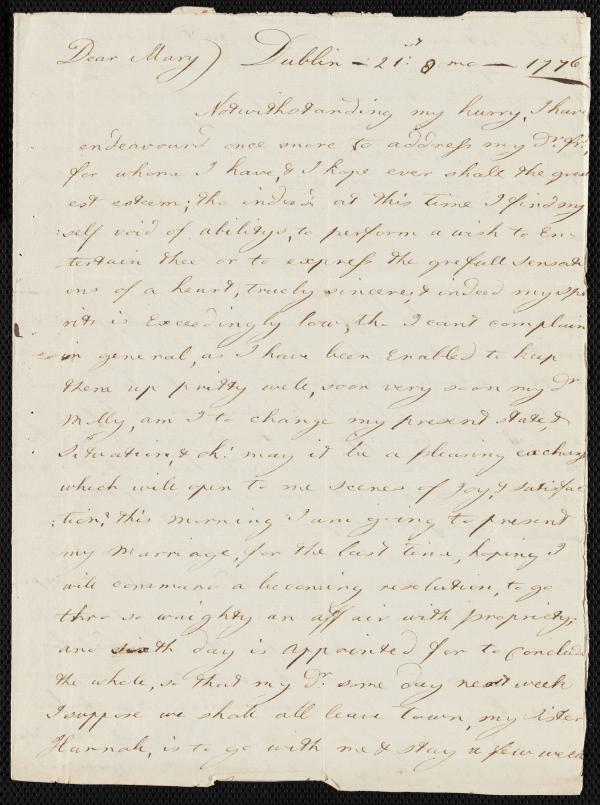 Dear Mary) Dublin - 21st 8 mo - 1776
Notwithstanding my hurry, I have
endeavour'd once more to address my Dr. fr,
for whome I have, & I hope ever shall the great
est esteem; tho indeed at this time I find my
self void of abilitys, to perform a wish to En-
tertain thee or to express the grefull sensati
ons of a heart, truely sincere, & indeed my spi
rits is Exceedingly low, tho I cant complain
in general, as I have been Enabled to keep
them up pritty well, soon very soon my Dr.
Molly, am I to change my present state, &
Situation, & oh! may it be a pleasing exchang
which will open to me scenes of Joy & satisfac
:tion, this morning I am going to present
my Marriage, for the last time, hoping I
will command a becoming resolution, to go
thro so waighty an affair with propriety,
and sixth day is appointed for to Conclude
the whole, so that my Dr. some day next week
I suppose we shall all leave town, my sister
Hannah, is to go with me & stay a few week